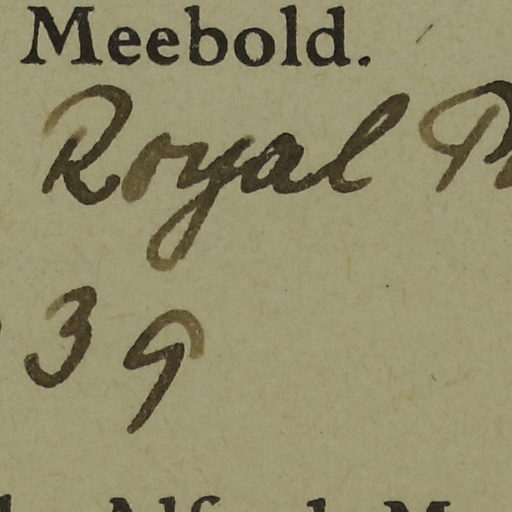 Meebold.
Royal
39